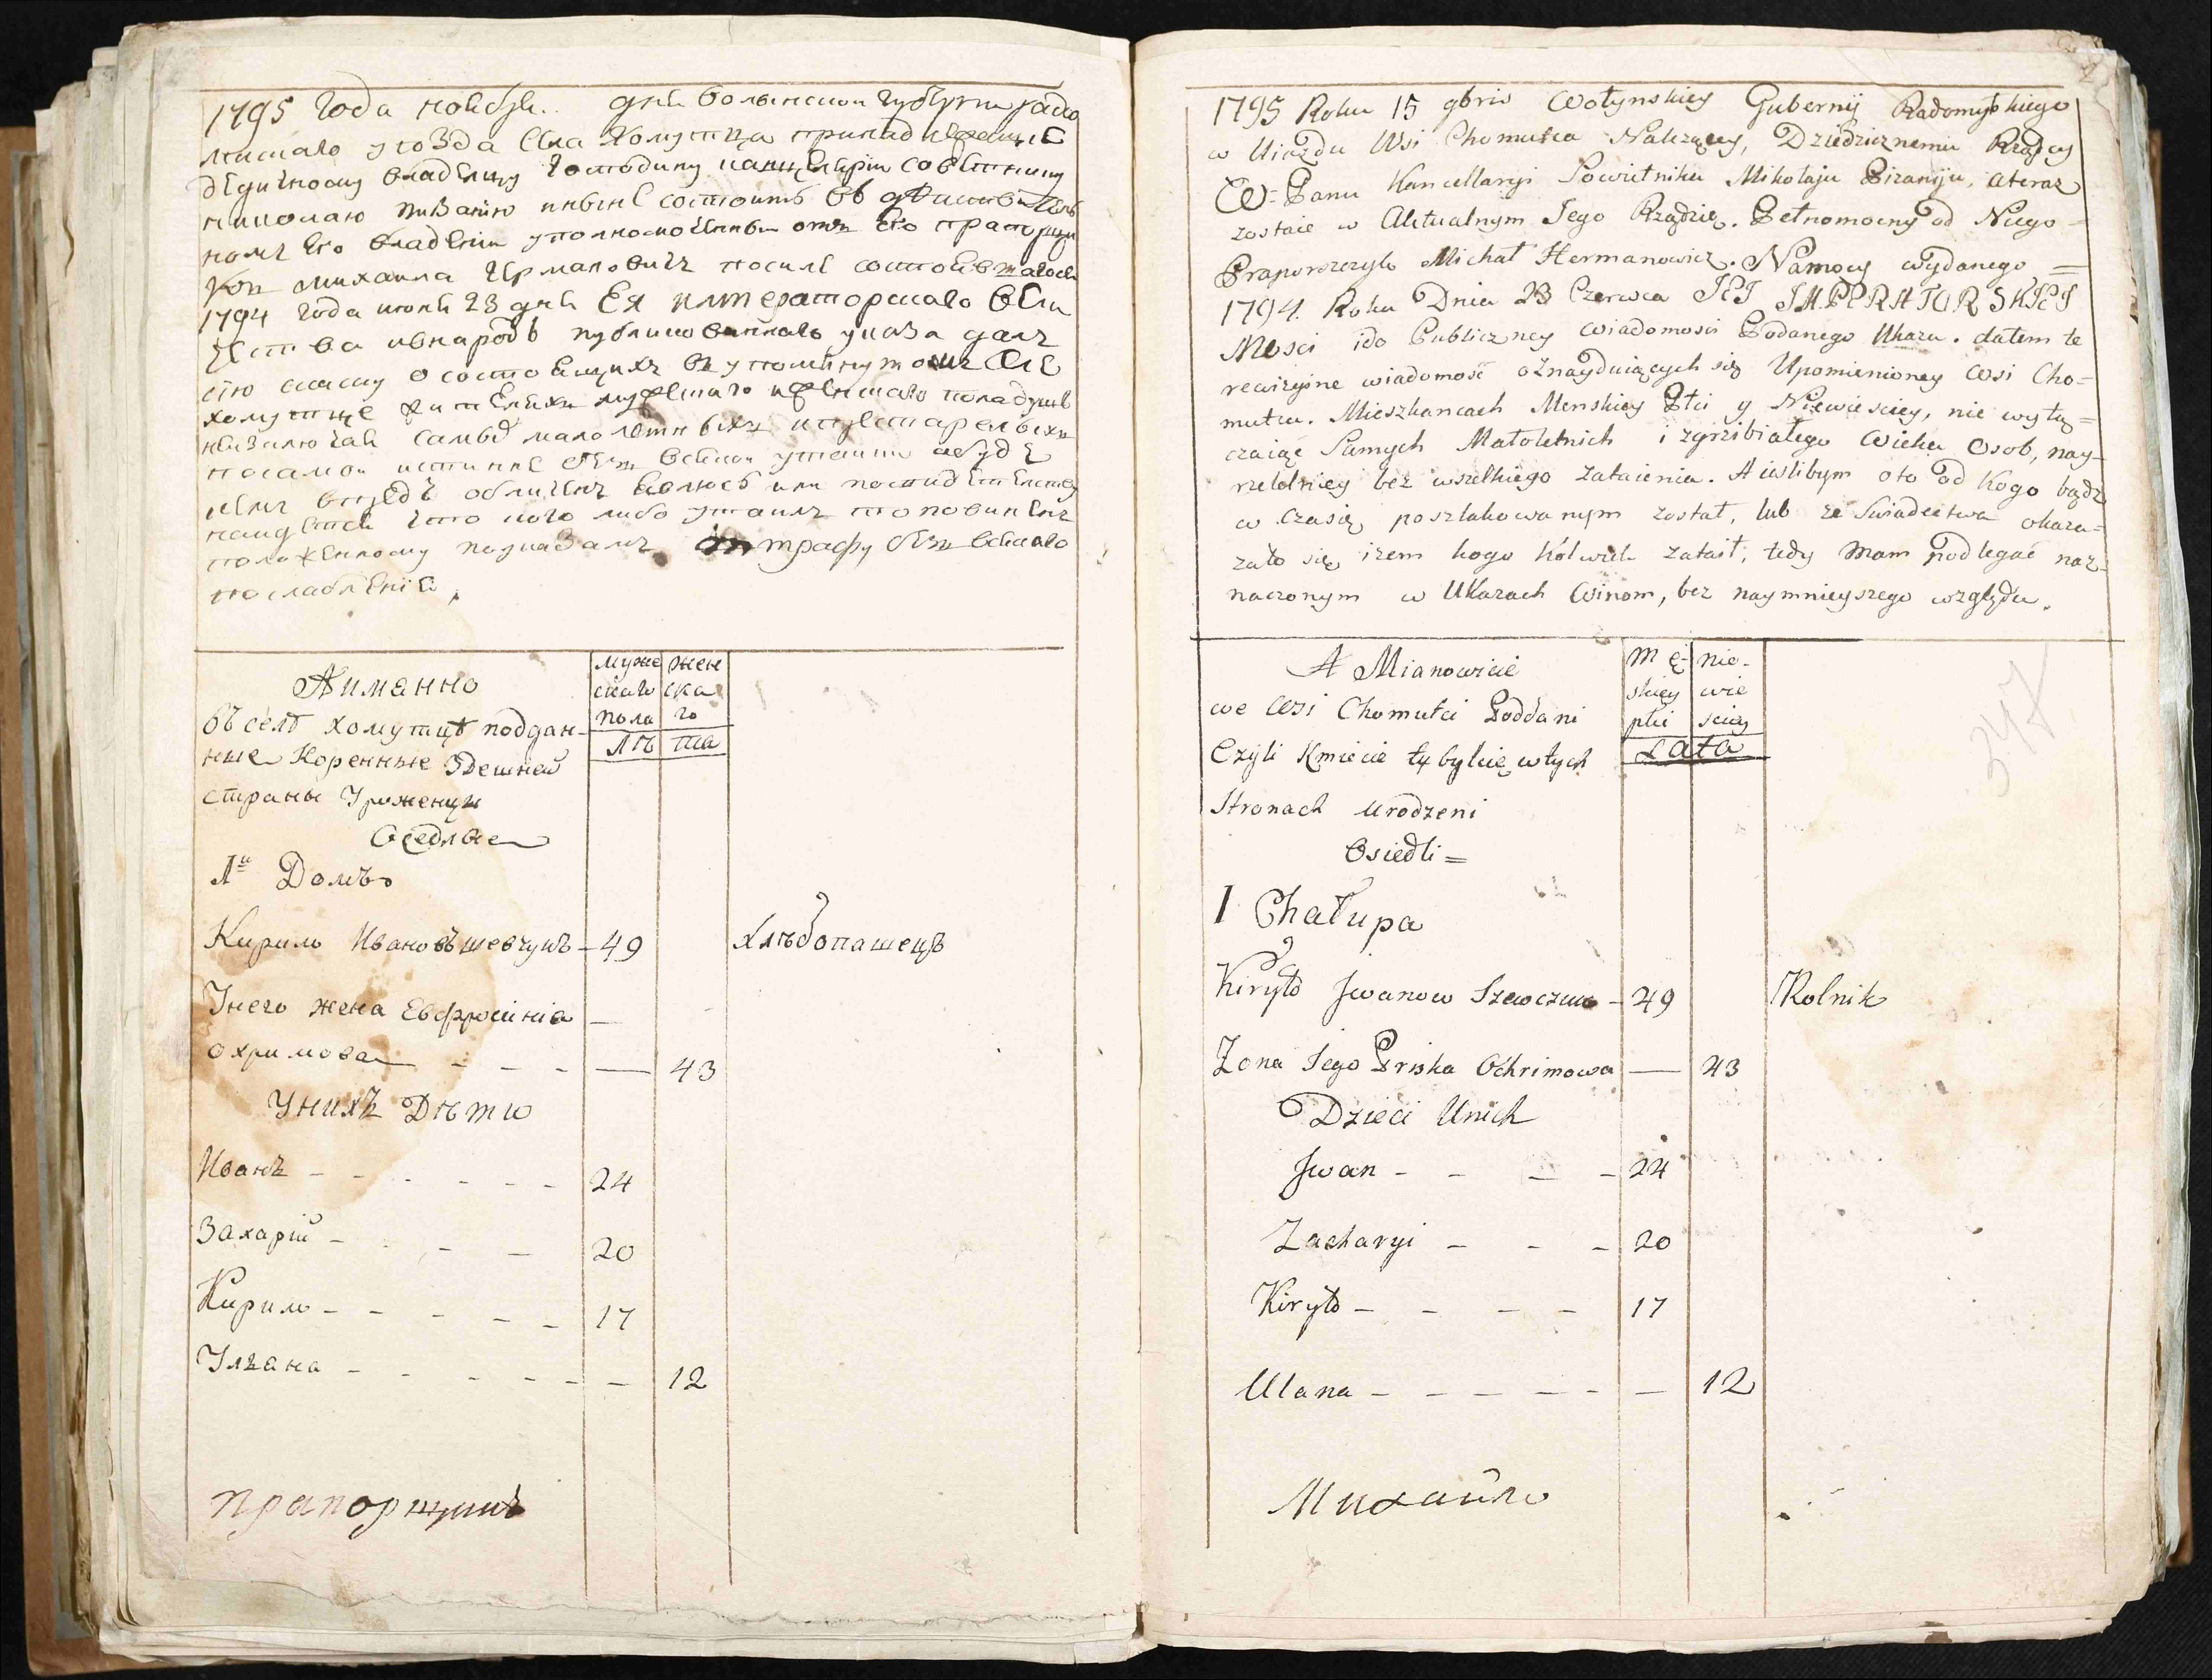 1795 года ноября.. дня волынской губернии радо
мисшаго уезда села Хомутца принадлежащие
дедичному владелцу господину канцелярии советнику
николаю пиванию иныне состоитъ въ действитель
номъ его владении уполномоченный отъ его прапорщи
къ михаила Германовичъ посиле состоявшагося
1794 года июня 23 дня Ея императорскаго вели
чества ивнародъ публикованнаго указа далъ
сию скаску о состоящихъ въ упомянутомъ селе
хомутце жителяхъ мужескаго иженскаго пола душъ
невыключая самыхъ малолетныхъ ипрестарелыхъ
посамой истинне безъ всякой утайки абуде
кемъ впредъ обличенъ явлюсъ или посвидетелству
найдется что кого либо утаилъ то повиненъ
положенному поуказамъ штрафу безъ всякаго
послабления.
Аимянно
въ селѣ хомутцѣ поддан-
ные Коренные Здешней
страны Уроженцы
Оседлые
муже женска
скаго го
пола
Лѣ та
1й Домъ
Кирило Ивановъ шевчукъ - 49 хлѣбопашецъ
Унего жена Евфросиния —
охримова - - - — 43
Унихъ Дѣти
Иванъ - - - - - - 24
Захарій - - - - 20
Кирило - - - - - 17
Улияна - - - - - - 12
прапорщикъ
1795 Roku 15 gbris Wołynskiey Gubernij Radomyskiego
w Uiazdu Wsi Chomutca Nalezącey, Dziedzicznemu Rządcy
W= Panu Kancellaryi Sowietniku Mikołaju Piraniju, Ateraz
zostaie w Aktualnym Jego Rządzie. Pełnomocny od Niego=
Praporszczyk Michał Hermanowicz. Namocy wydanego =
1794. Roku Dnia 23 Czerwca JEJ IMPERATORSKIEJ
Mosci ido Publiczney wiadomosci Podanego Ukazu. datem te
rewizyine wiadomość oznayduiących się Upomienioney Wsi Cho=
mutcu. Mieszkancach Menskiey Płci y Niewiesciey, nie wyłą=
czaiąc Samych Małoletnich i zgrzibiałego Wieku Osob, nay-
rzetelniey bez wszelkiego zataienia. A ieslibym oto od Kogo bądz
w Czasie poszlakowanym został, lub ze Swiadectwa okaza=
zało się izem kogo kolwiek zataił, tedy Mam podlegać naz-
naczonym w Ukazach Winom, bez naymnieyszego względu.
A Mianowicie
we Wsi Chomutci Poddani
Czyli Kmiecie tybylcie wtych
Stronach Urodzeni
Osiedli =
Mę- nie-
skiey wie
płci sciey
Lata
1 Chałupa
Kiryło Jwanow Szewczuk - 49 Rolnik
Zona Jego Priska Ochrimowa — 43
Dzieci Unich
Jwan - - - - 24
Zacharyi - - - 20
Kiryło - - - - 17
Ulana - - - - - - 12
Михайло
347